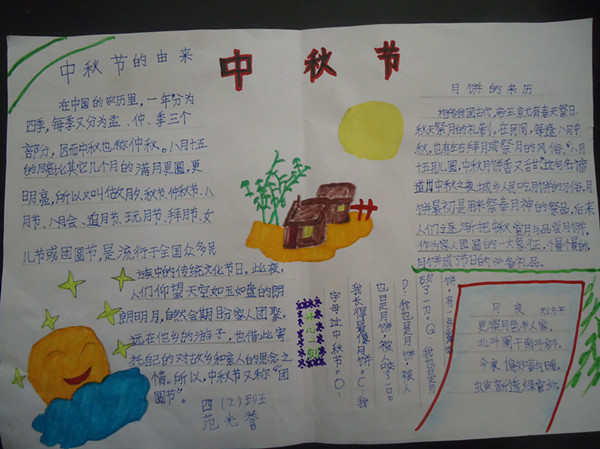 中秋节
中秋节的由来
在中国的农历里，一年分为
四季，每季又分为孟、仲、季三个
部分，因而中秋也称仲秋。八月十五
的月亮比其它几个月的满月更圆，更
明亮，所以又叫做月夕，秋节、仲秋节、八
月节、八月会、追月节、玩月节、拜月节、女
儿节或团圆节，是流行于全国众多民
族中的传统文化节日。此夜，
人们仰望天空如玉如盘的朗
朗明月，自然会期盼家人团聚。
远在他乡的游子，也借此寄
托自己的对故乡和亲人的思念之
情。所以，中秋节又称"团
圆节"。
四(2)班
月饼的来历
相传我国古代，帝王就有春天祭日、
秋天祭月的礼制。在民间，每逢八月中
秋，也有左右拜月或祭月的风俗。"八
月十五月儿圆，中秋月饼香又甜"，这句名
谚道出中秋之夜城乡人民吃月饼的习俗，月
饼最初是用来祭奉月神的祭品，后来
人们逐渐把中秋赏月与品尝月饼，
作为家人团圆的一大象征，慢慢的
月饼成了节日的必备礼品。
字母过中秋节。O：
我长得最像月饼。C：我
也是月饼，被人咬了一口。
D：我也是月饼，被人
切了一刀。Q：我也是月
饼，有一
月夜
更深月色半人家，
北斗阑干南斗斜。
今夜偏知春气暖，
虫声新透绿窗纱。